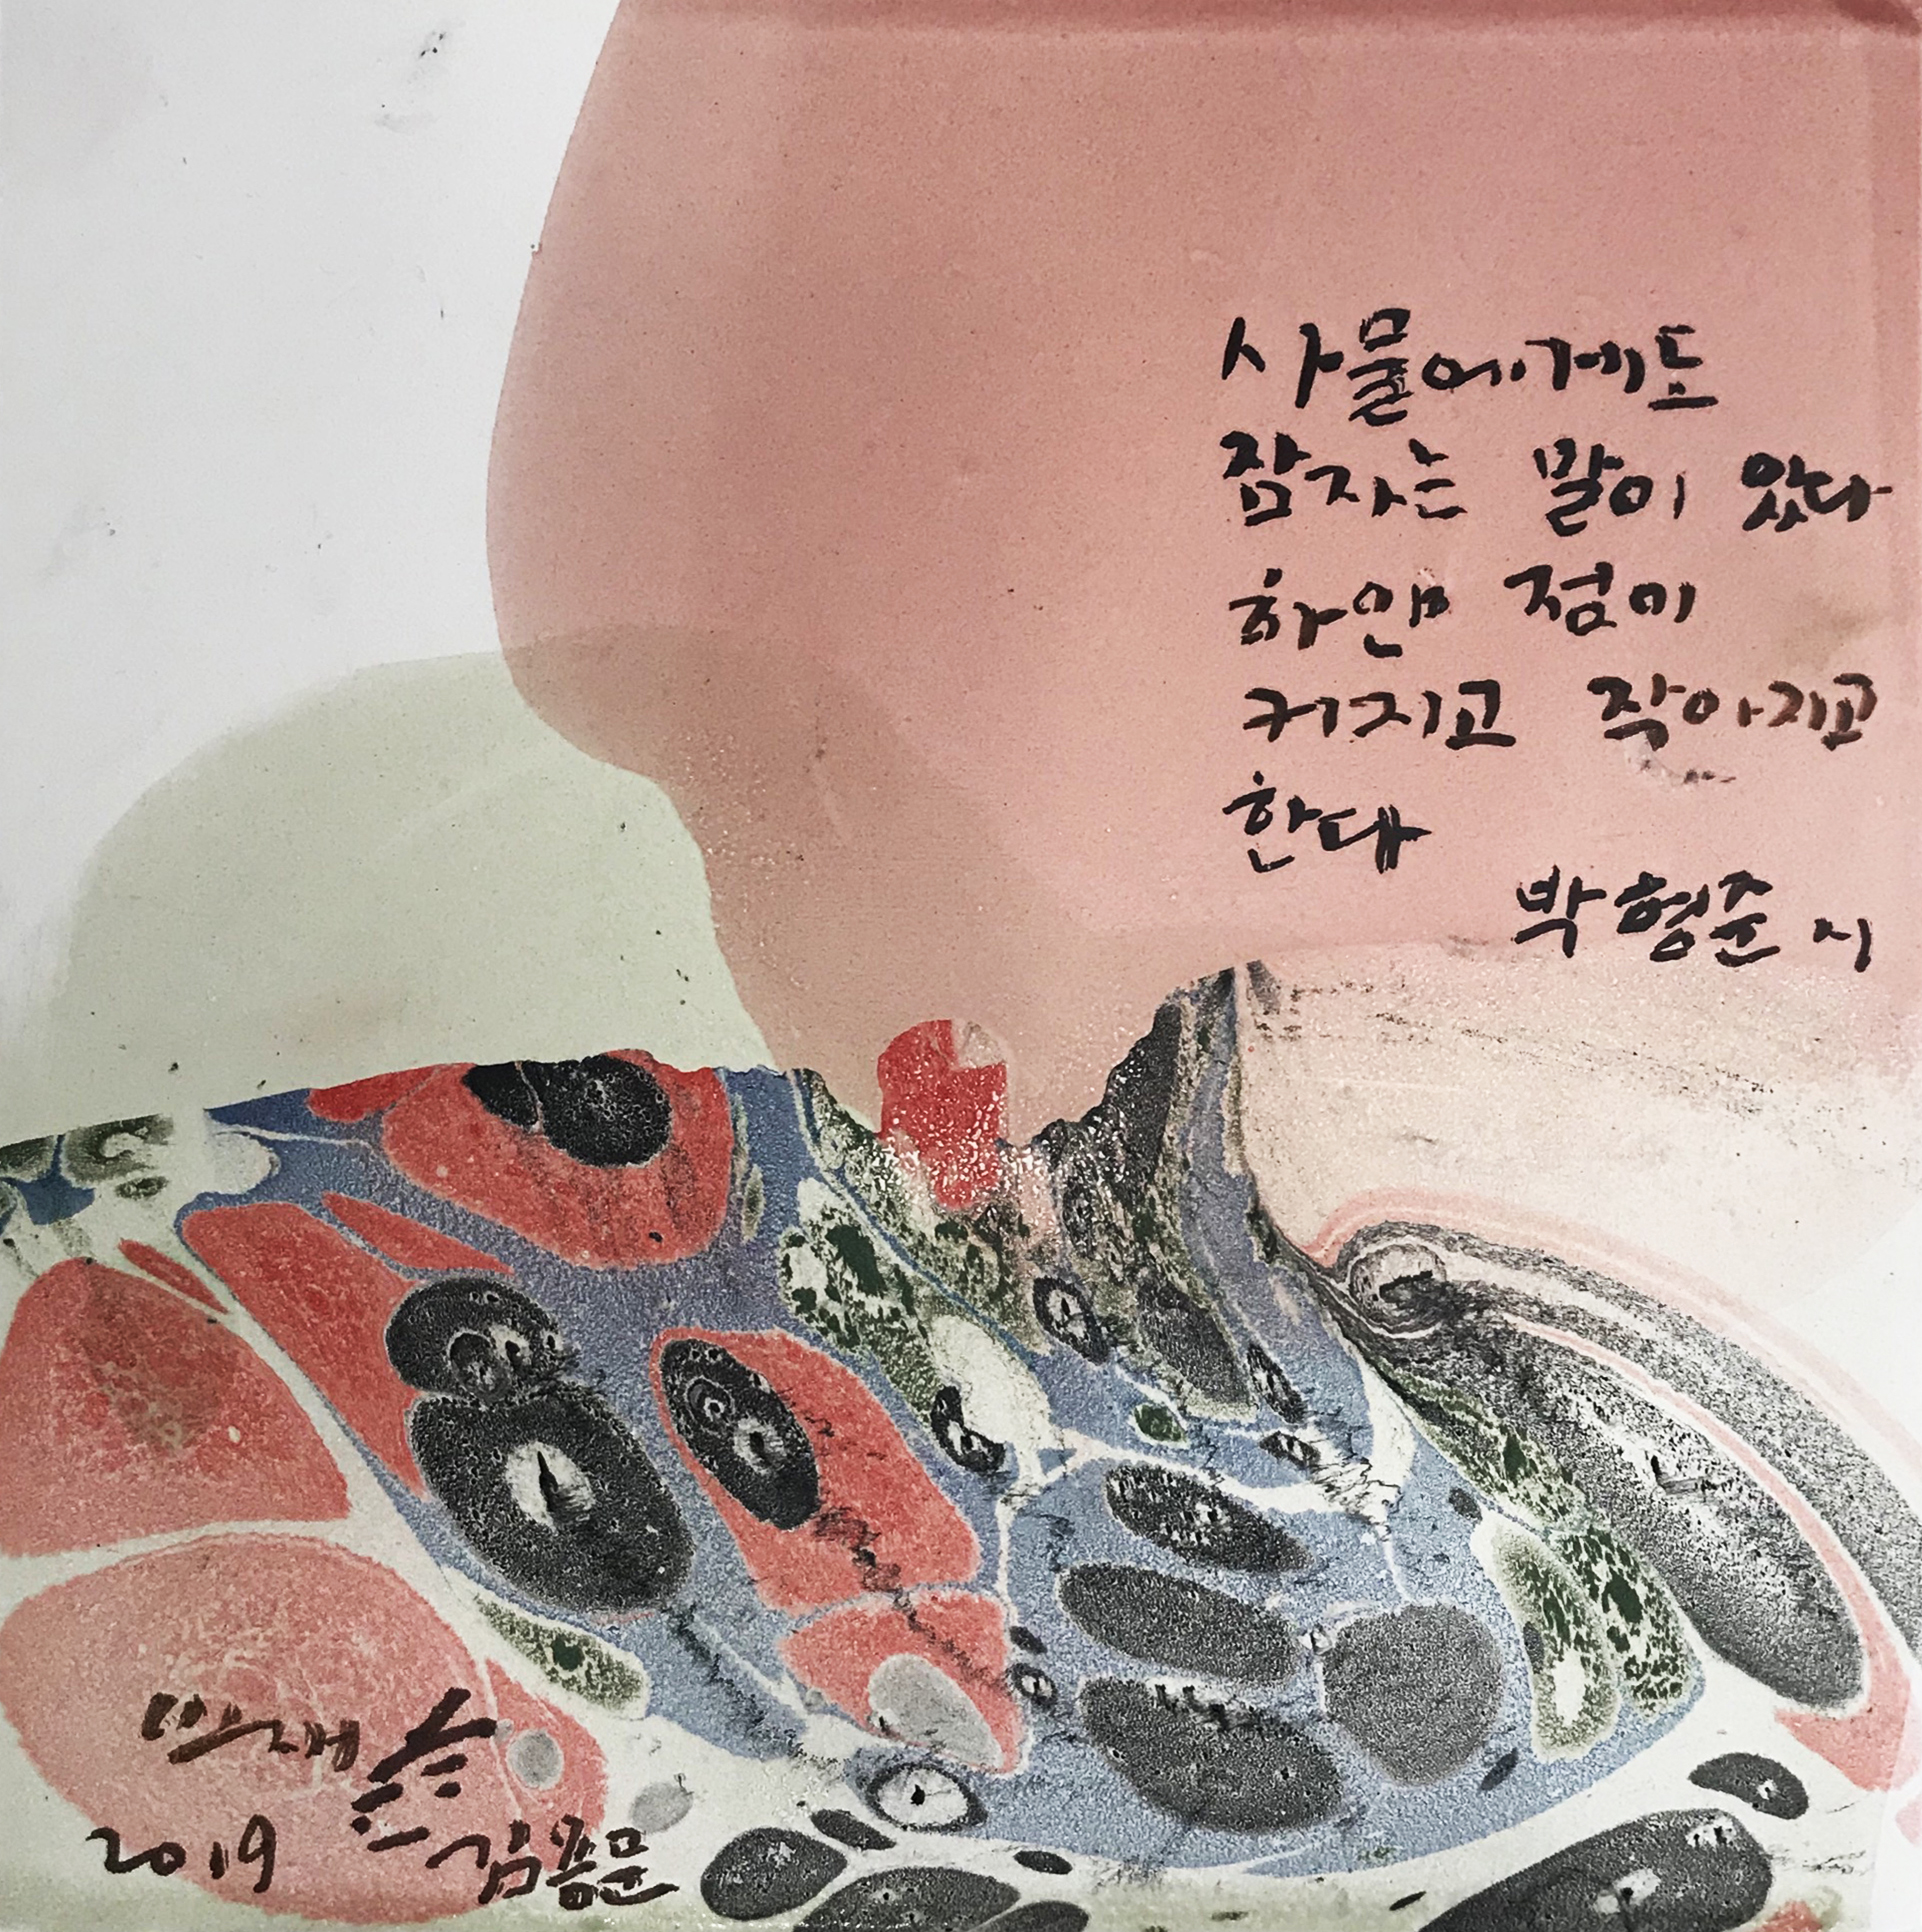 사물에게도
잠자는 말이 있다
하얀 점이
커지고 작아지고
한다
박형준 시
2019
김